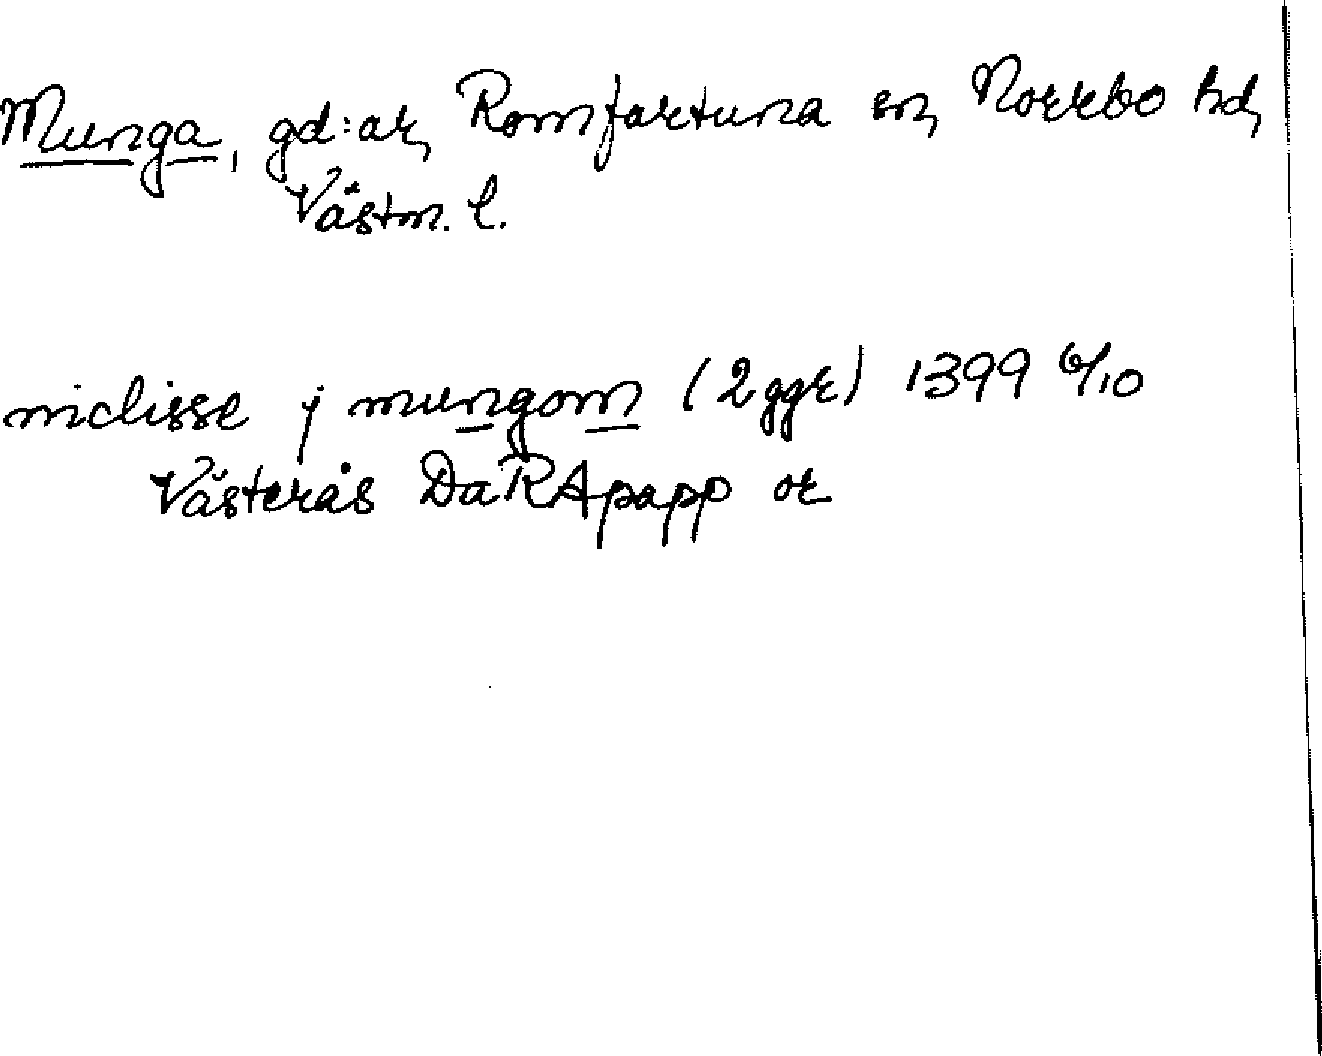 Munga, gd:ar, Romfartuna sn, Norrbo hd,
Västm. l.
niclisse j mungom (2 ggr) 1399 6/10
Västerås DaRApapp or